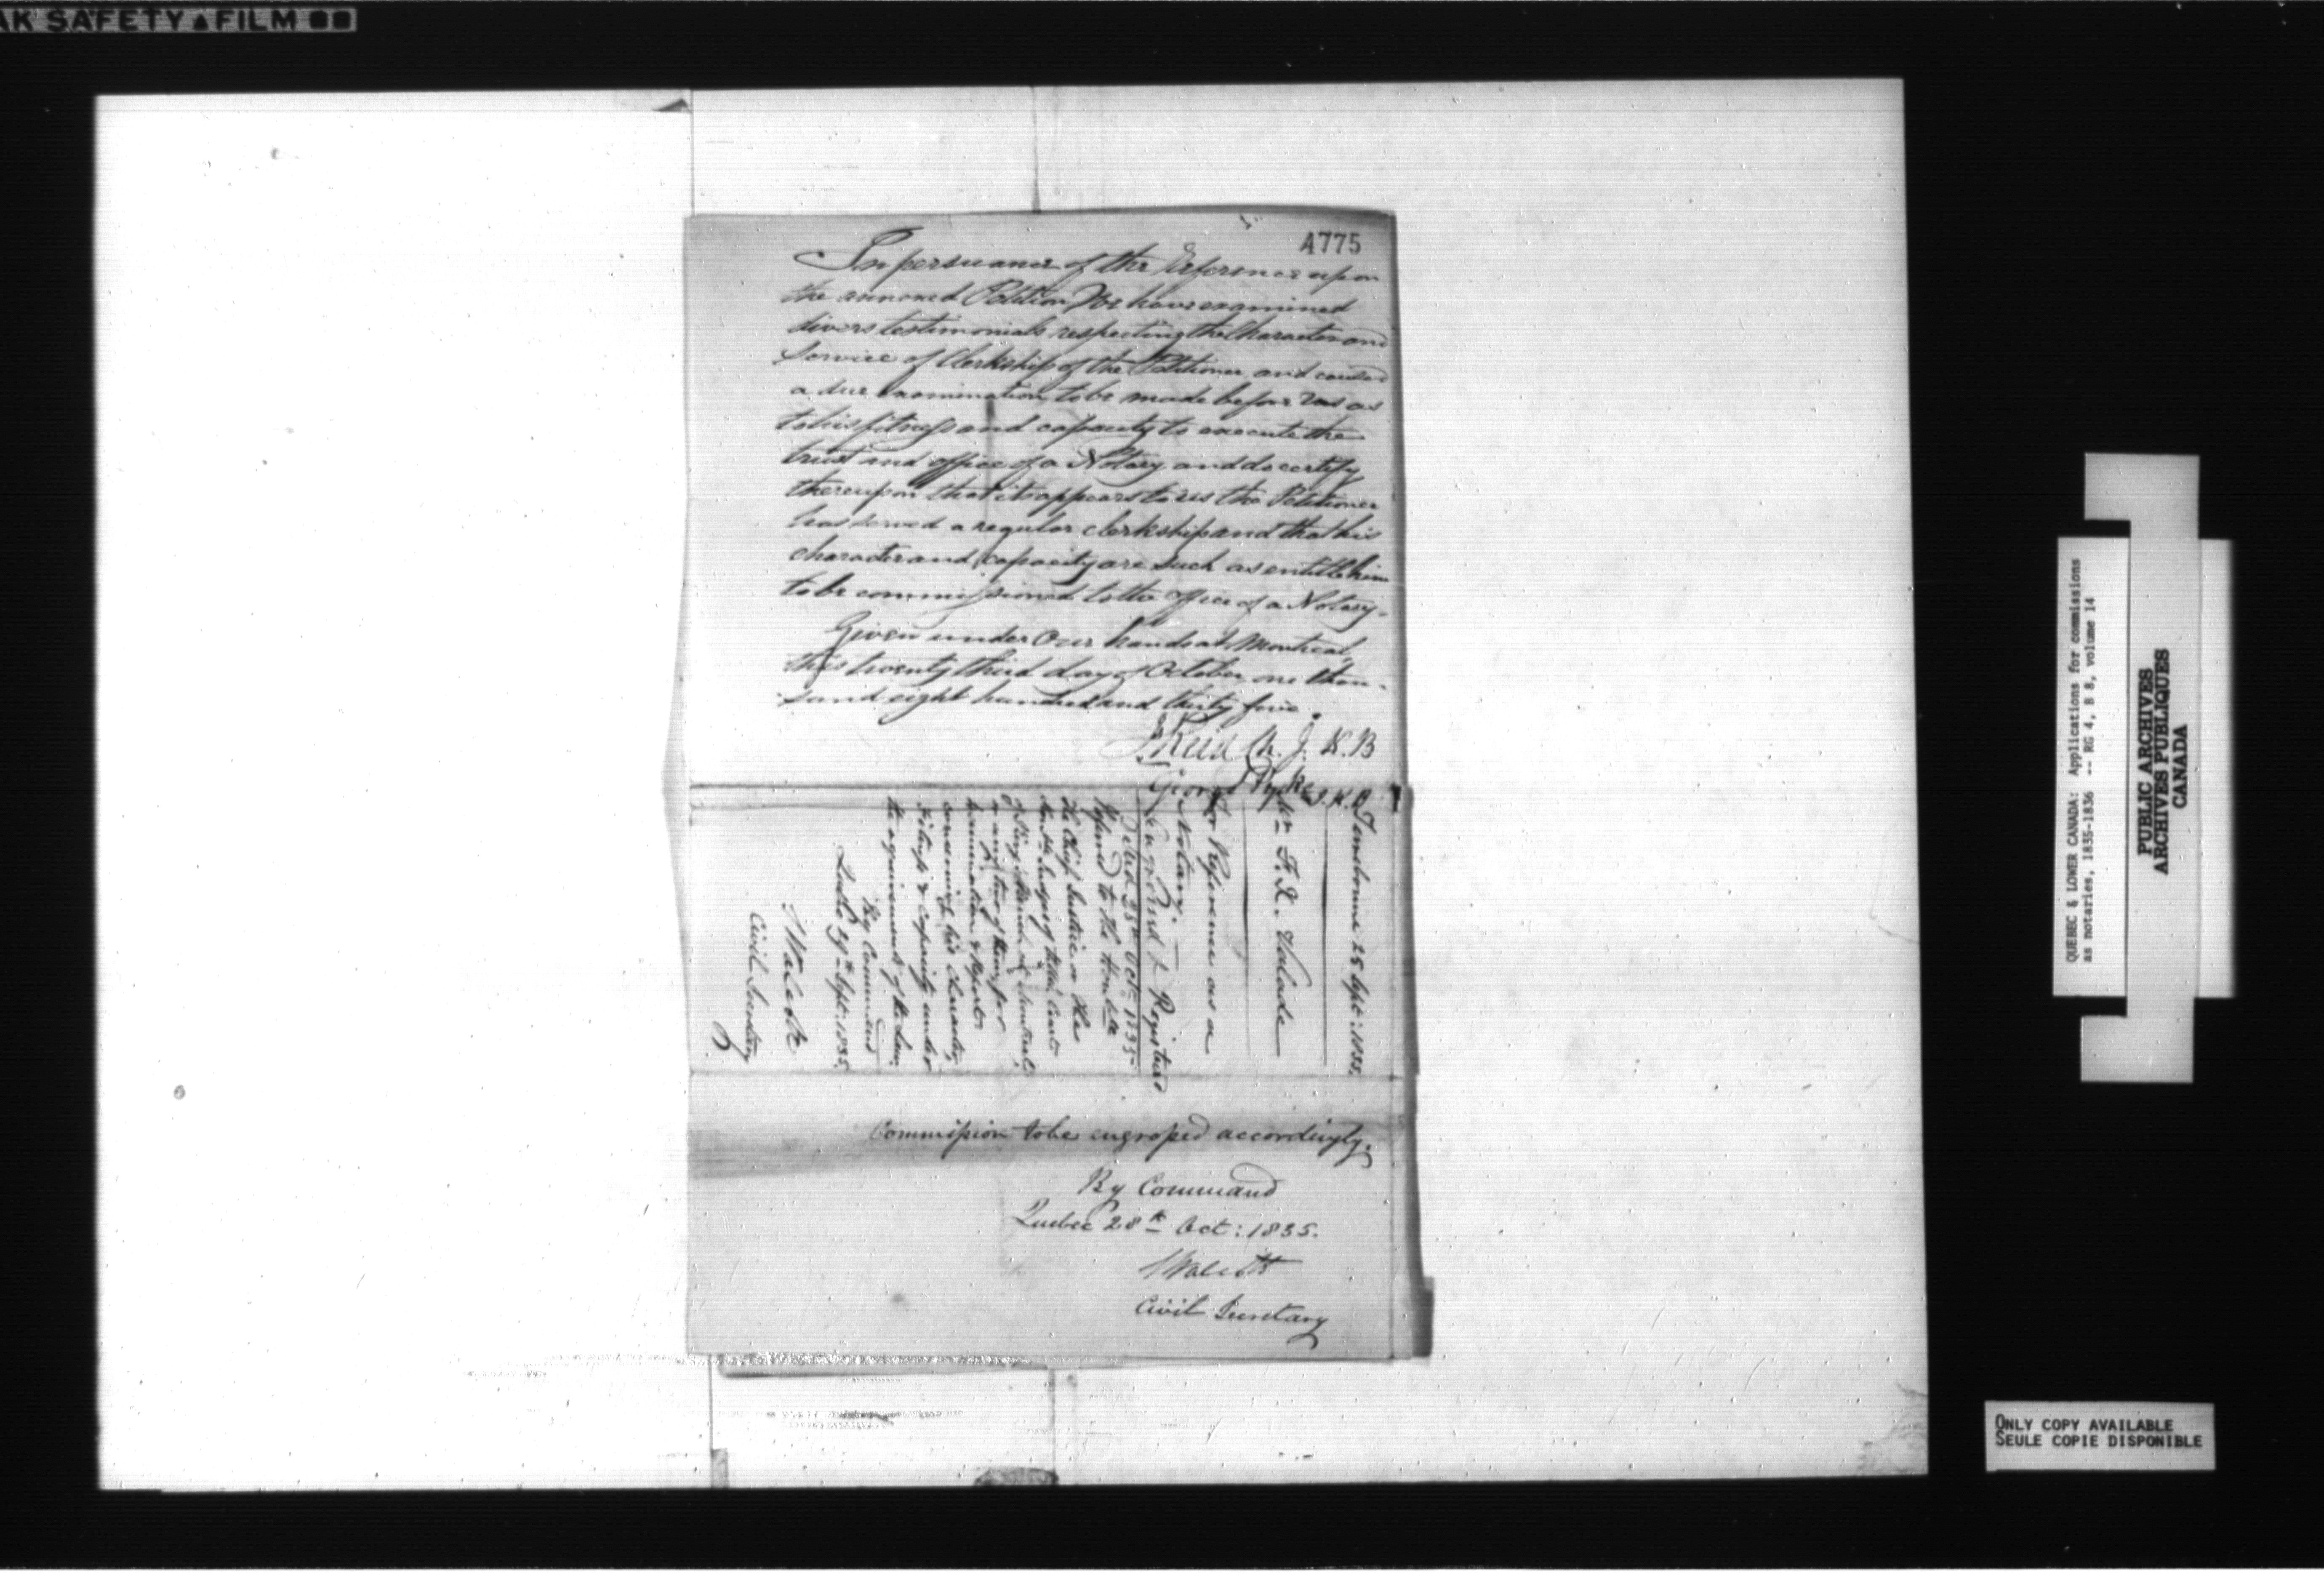 AK SAFETY▲FILM
4775
In persuance of the Reference upon
the annexed Petition We have examined
divers testimonials respecting the Character and
Service of Clerkship of the Petitioner and caused
a due examination to be made before Us as
to his fitness and capacity to execute the
trust and office of a Notary and do certify
thereupon that it appears to us the Petitioner
has served a regular clerkship and that his
character and capacity are such as entitle him
to be commissioned to the Office of a Notary-
Given under Our hands at Montreal,
this twenty third day of October, one thou-
sand eight hundred and thirty five.
J Reid Ch. J. K. B
George Pyke J. K. B
Terrebonne 25 Sept: 1835.
F. X. Valade
for Reference as a
Notary.
Engrossed & Registered
28th Octr 1835
Referred to the Honble
the Chief Justice or the
Honble Judges of the Court
of King's Bench at Montreal,
or any two of them for
Examination & Report
concerning his character,
fitness & capacity under
the requirements of the Law.
By Command
Quebec 29th Sept: 1835.
S Walcott
Civil Secretary
Commission to be engrossed accordingly.
By Command
Quebec 28th Oct: 1835.
S Walcott
Civil Secretary
QUEBEC & LOWER CANADA: Applications for commissions
as notaries, 1835-1836 -- RG 4, B 8, volume 14
PUBLIC ARCHIVES
ARCHIVES PUBLIQUES
CANADA
ONLY COPY AVAILABLE
SEULE COPIE DISPONIBLE